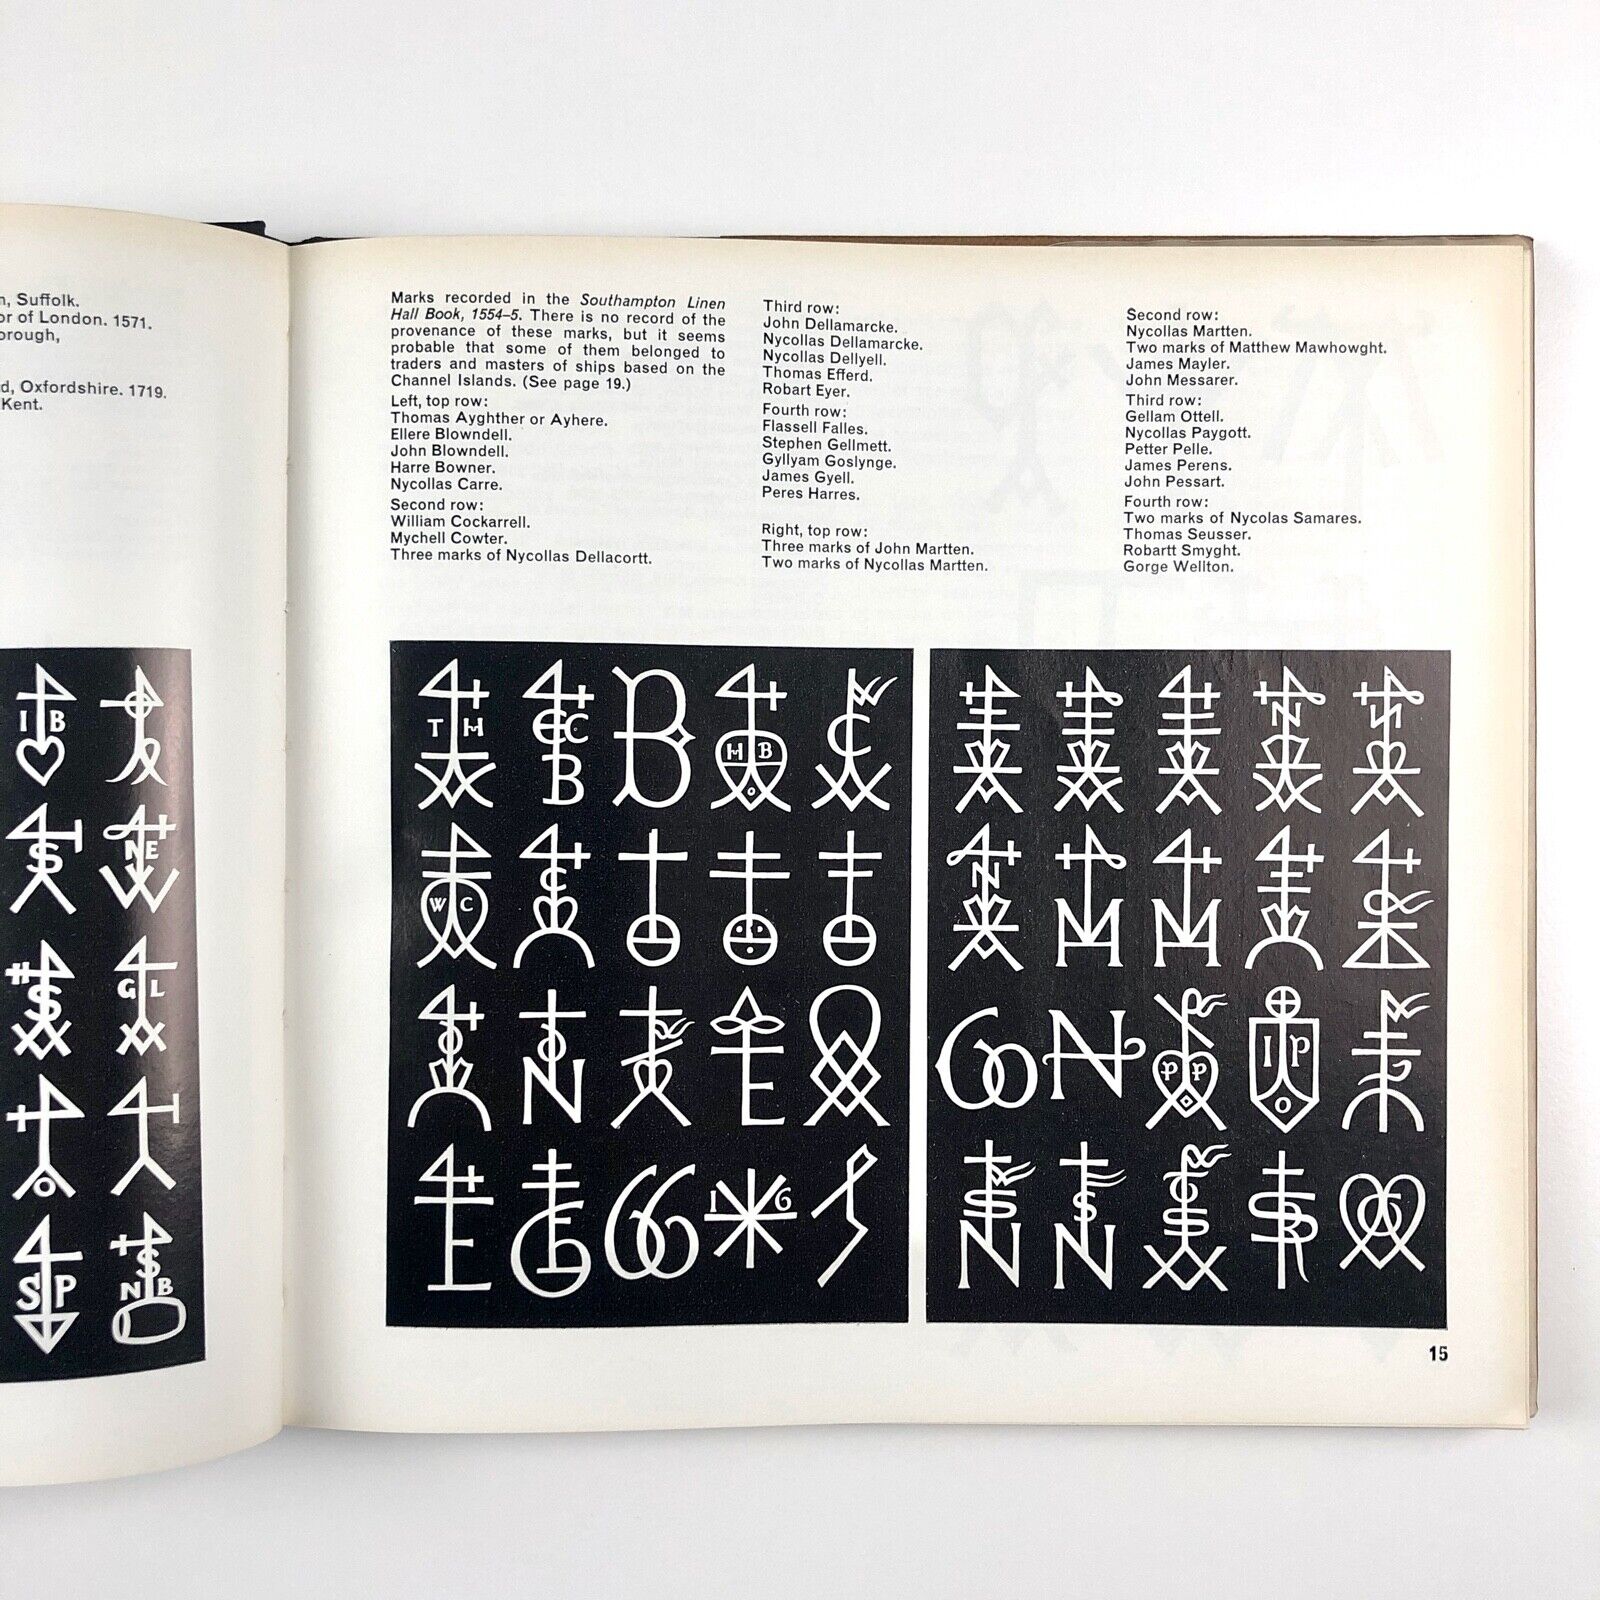 , Suffolk.
or of London. 1571.
orough,
d, Oxfordshire. 1719.
Kent.
I B
S
NE
H
S
G L
S P
S
N B
Marks recorded in the Southampton Linen
Hall Book, 1554–5. There is no record of the
provenance of these marks, but it seems
probable that some of them belonged to
traders and masters of ships based on the
Channel Islands. (See page 19.)
Left, top row:
Thomas Ayghther or Ayhere.
Ellere Blowndell.
John Blowndell.
Harre Bowner.
Nycollas Carre.
Second row:
William Cockarrell.
Mychell Cowter.
Three marks of Nycollas Dellacortt.
Third row:
John Dellamarcke.
Nycollas Dellamarcke.
Nycollas Dellyell.
Thomas Efferd.
Robart Eyer.
Fourth row:
Flassell Falles.
Stephen Gellmett.
Gyllyam Goslynge.
James Gyell.
Peres Harres.
Right, top row:
Three marks of John Martten.
Two marks of Nycollas Martten.
Second row:
Nycollas Martten.
Two marks of Matthew Mawhowght.
James Mayler.
John Messarer.
Third row:
Gellam Ottell.
Nycollas Paygott.
Petter Pelle.
James Perens.
John Pessart.
Fourth row:
Two marks of Nycolas Samares.
Thomas Seusser.
Robartt Smyght.
Gorge Wellton.
T H E C B B H B C
W C C
O O N E
E E G I G
N N
N M M
N P P I P O G
S N S N G S S R G
15